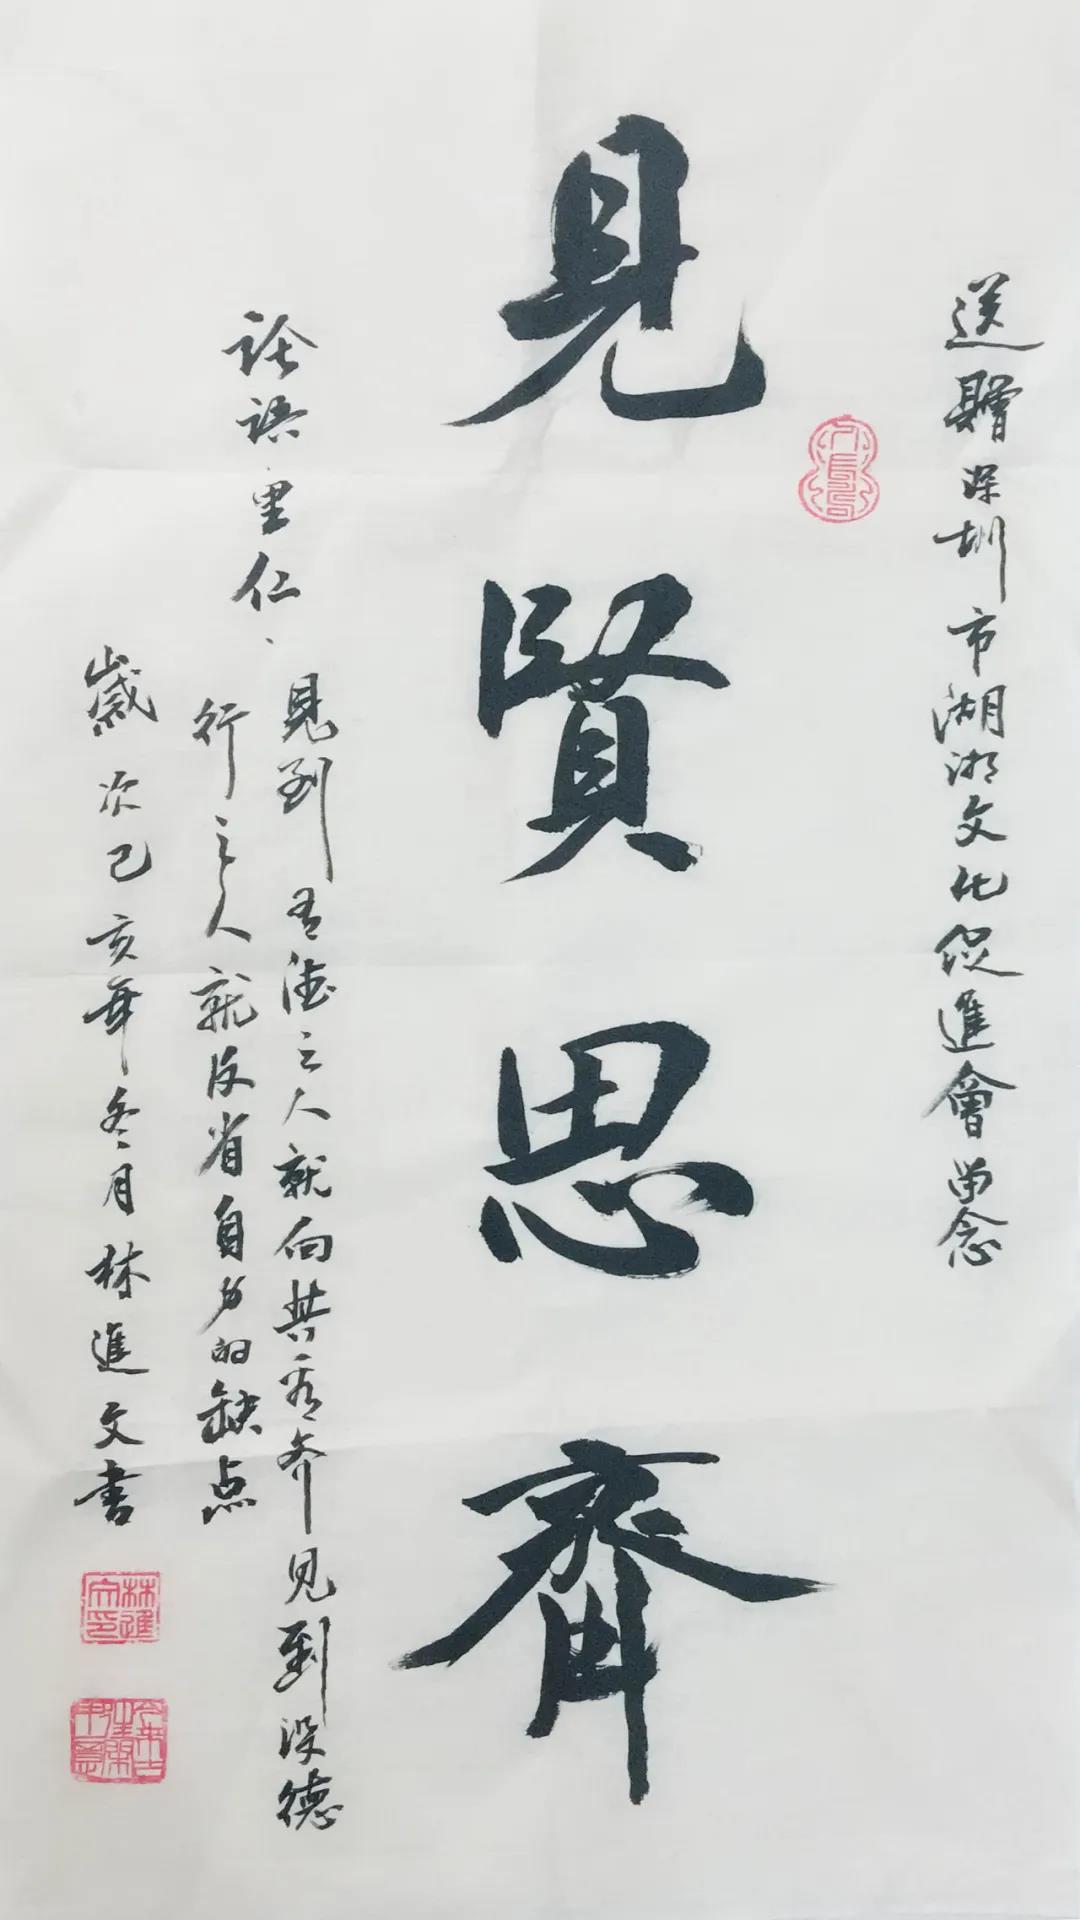 送贈深圳市湖湘文化促進會留念
見賢思齊
论語里仁、
見到有德之人就向其看齐見到没德
行之人就反省自身的缺点
歲次己亥年冬月林進文書
林進文印